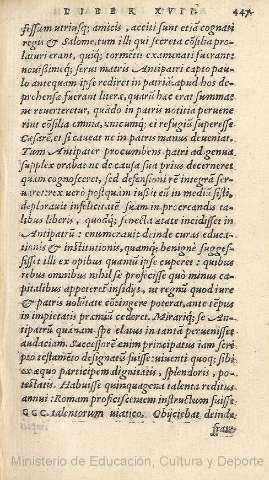 LIBER XVII. 447
fissum utriusq; amicis, acciti sunt etiā cognati
regis & Salome, tum illi qui secreta cōsilia pro-
laturi erant, quiq; tormētis examinati fuerant:
nouissimeq; serui matris Antipatri capto pau-
lo antequam ipse rediret in patriā, apud hos de-
prehensæ fuerant literæ, quarū hæc erat summa:
ne reuerteretur, quādo in patris notitiā perue-
nerint cōsilia omnia, unicumq; ei refugiū superesse
Cæsarē, et si caueat ne in patris manus deueniat.
Tum Antipater procumbens patri ad genua,
supplex orabat ne de causa sua prius decerneret
quam cognosceret, sed defensioni rē integrā ser-
uaret: rex uero postquam iußit eū in mediū sisti,
deplorauit infelicitatē suam in procreandis ta-
libus liberis, quodq; senecta ætate incidisset in
Antipatrū: enumerauit deinde curas educa-
tionis & institutionis, quamq; benignè sugges-
sisset illi ex opibus quantū ipse cuperet: quibus
rebus omnibus nihil se profecisse quò minus ca-
pitalibus appeteretur insidijs, ut regnū quod iure
& patris uolūtate cōtingere poterat, ante tēpus
in impietatis præmiū cederet. Mirariq; se An-
tipatrū quàenam spe elatus in tantā peruenisset
audaciam. Successorē enim principatus iam scri
pto testamēto designatū fuisse: uiuenti quoq; sibi
ex æquo participem dignitatis, splendoris, po-
testatis. Habuisse quinquagena talenta reditus
annui: Romam proficiscentem instructum fuisse
CCC. talentorum uiatico. Obijciebat deinde
fratr
Ministerio de Educación, Cultura y Deporte